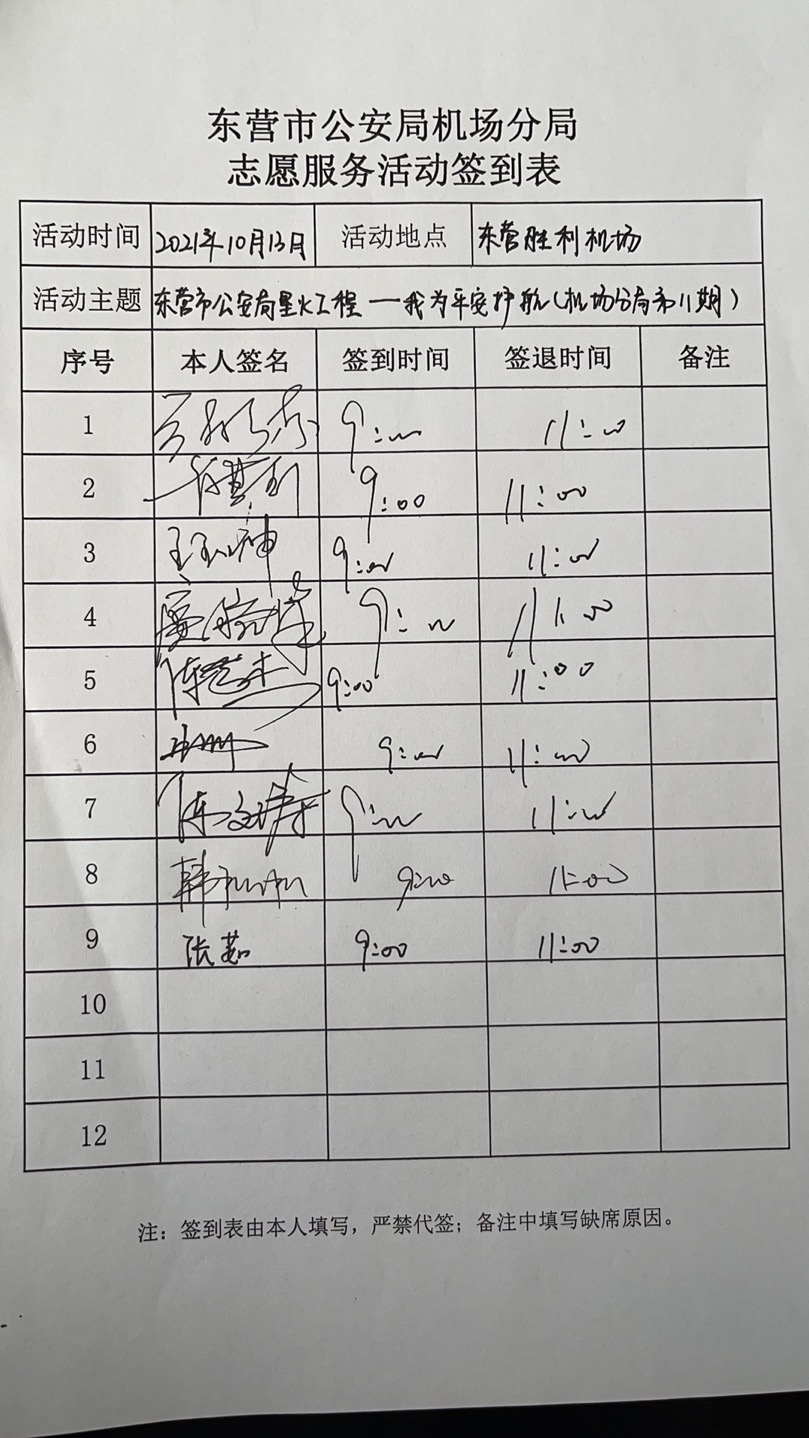 东营市公安局机场分局
志愿服务活动签到表
活动时间 2021年10月13日 活动地点 东营胜利机场
活动主题 东营市公安局星火工程——我为平安护航(机场分局第11期)
序号 本人签名 签到时间 签退时间 备注
1 9:00 11:00
2 9:00 11:00
3 王玉坤 9:00 11:00
4 9:00 11:00
5 陈艺杰 9:00 11:00
6 9:00 11:00
7 陈文 9:00 11:00
8 韩 9:00 11:00
9 张茹 9:00 11:00
10
11
12
注：签到表由本人填写，严禁代签；备注中填写缺席原因。